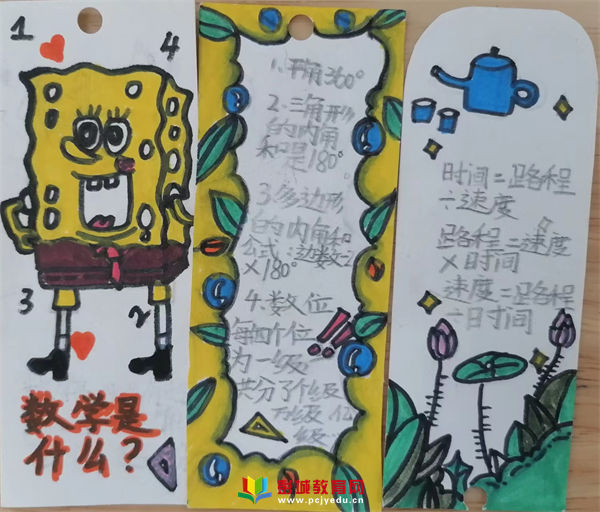 1
4
3
2
数学是
什么？
1.平角360°
2.三角形
的内角
和是180°
3.多边形
的内角和
公式:边数-2
×180°
4.数位
每四个位
为一级
共分了个级
万级 亿
级…
!!
时间=路程
÷速度
路程=速度
×时间
速度=路程
÷时间
彭城教育网
www.pcjyedu.cn